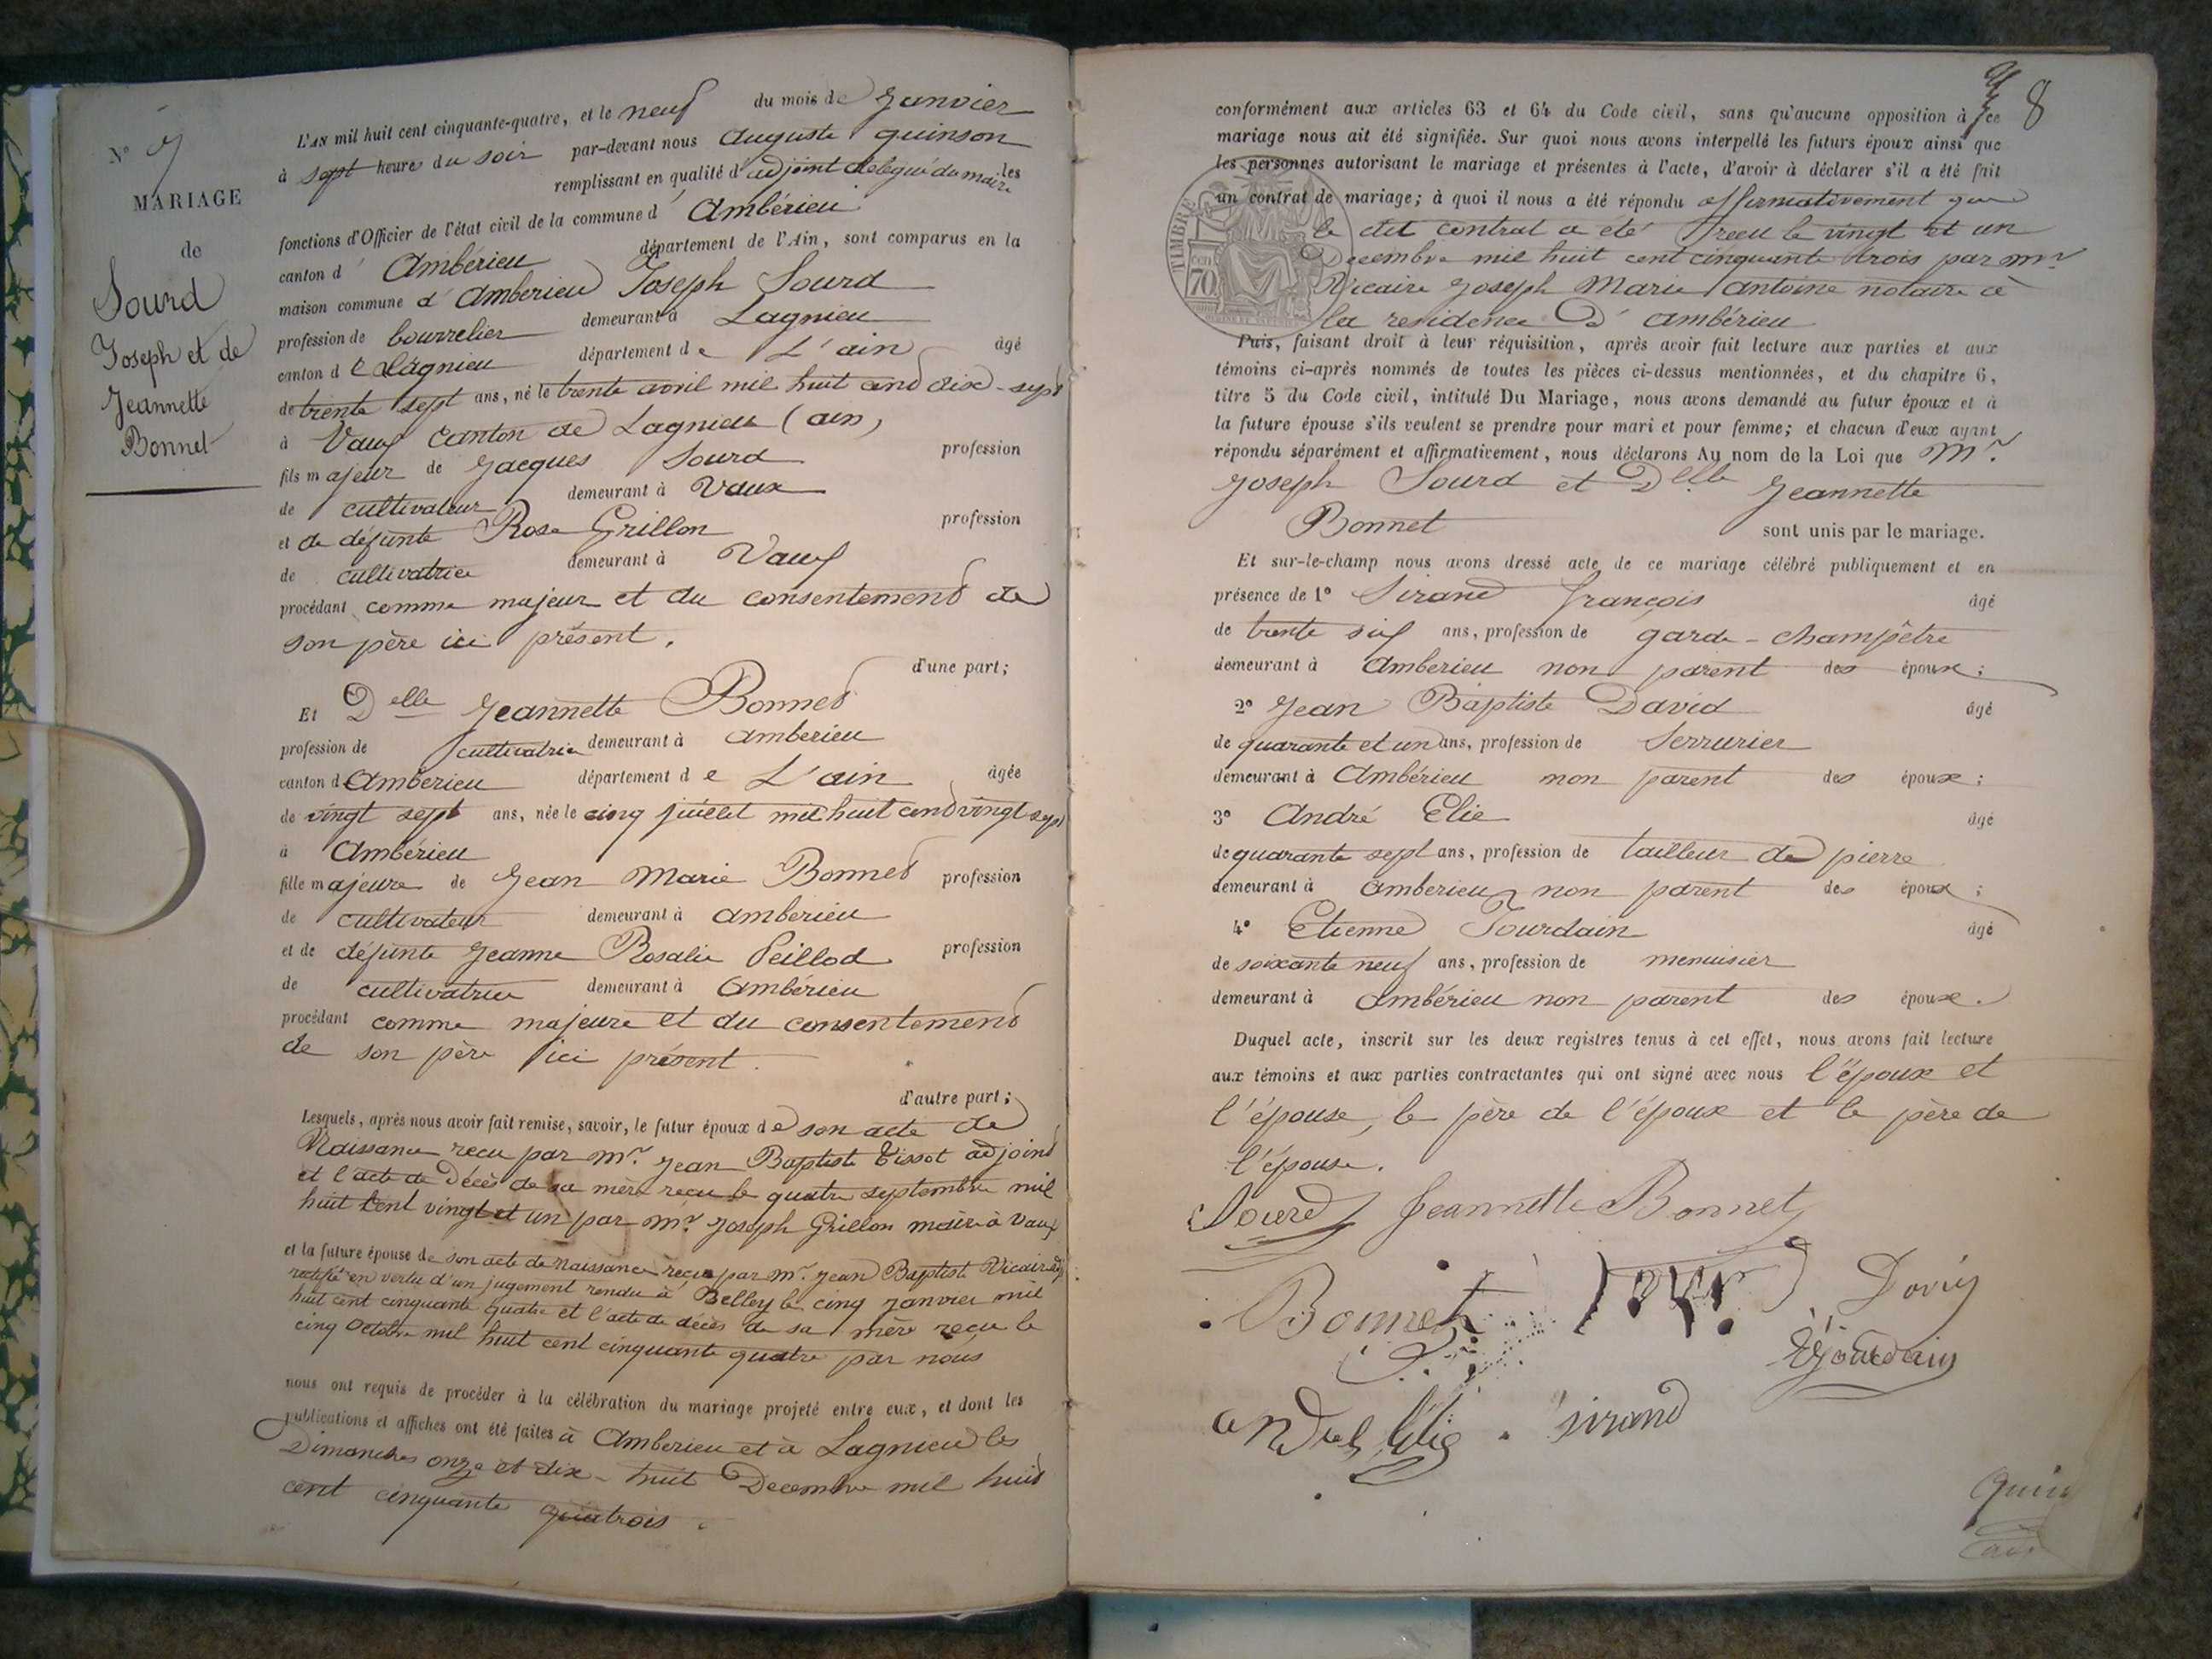 N° 7
MARIAGE
de
Sourd
Joseph et de
Jeannette
Bonnet
L'AN mil huit cent cinquante-quatre, et le neuf du mois de Janvier
à sept heure du soir par-devant nous Auguste quinson
remplissant en qualité d'adjoint délégué du maire les
fonctions d'Officier de l'état civil de la commune d' Ambérieu
canton d' Ambérieu département de l'Ain, sont comparus en la
maison commune d' Amberieu Joseph Sourd
profession de bourrelier demeurant à Lagnieu
canton de Lagnieu département de L'ain âgé
de trente sept ans, né le trente avril mil huit cend dix-sept
à Vaux Canton de Lagnieu (ain)
fils majeur de Jacques Sourd profession
de cultivateur demeurant à Vaux
et de défunte Rose Grillon profession
de cultivatrice demeurant à Vaux
procédant comme majeur et du consentement de
son père ici présent.
d'une part;
Et Delle Jeannette Bonnet
profession de cultivatrice demeurant à Amberieu
canton d Amberieu département de L'ain âgée
de vingt sept ans, née le cinq juillet mil huit cend vingt sept
à Ambérieu
fille majeure de Jean Marie Bonnet profession
de cultivateur demeurant à amberieu
et de défunte Jeanne Rosalie Peillod profession
de cultivatrice demeurant à Ambérieu
procédant comme majeure et du consentement
de son père ici présent.
d'autre part;
Lesquels, après nous avoir fait remise, savoir, le futur époux de son acte de
Naissance recu par mr. Jean Baptiste Tissot adjoint
et l'acte de Décès de sa mère recu le quatre septembre mil
huit Cent vingt et un par mr. Joseph Grillon maire à Vaux
et la future épouse de son acte de Naissance reçu par mr. Jean Baptiste Vicaire adj
rectifié en vertu d'un jugement rendu à Belley le cinq janvier mil
huit cent cinquante quatre et l'acte de décès de sa mère reçu le
cinq Octobre mil huit cent cinquante quatre par nous
nous ont requis de procéder à la célébration du mariage projeté entre eux, et dont les
publications et affiches ont été faites à Amberieu et à Lagnieu les
Dimanches onze et dix-huit Decembre mil huit
cent cinquante quatrois.
8
conformément aux articles 63 et 64 du Code civil, sans qu'aucune opposition à ce
mariage nous ait été signifiée. Sur quoi nous avons interpellé les futurs époux ainsi que
les personnes autorisant le mariage et présentes à l'acte, d'avoir à déclarer s'il a été fait
un contrat de mariage; à quoi il nous a été répondu affirmativement que
le dit contrat a été recu le vingt et un
Decembre mil huit cent cinquante trois par mr
Vicaire Joseph Marie Antoine notaire à
la residence d' ambérieu
TIMBRE
70
Puis, faisant droit à leur réquisition, après avoir fait lecture aux parties et aux
témoins ci-après nommés de toutes les pièces ci-dessus mentionnées, et du chapitre 6,
titre 5 du Code civil, intitulé Du Mariage, nous avons demandé au futur époux et à
la future épouse s'ils veulent se prendre pour mari et pour femme; et chacun d'eux ayant
répondu séparément et affirmativement, nous déclarons Au nom de la Loi que Mr.
Joseph Sourd et Delle Jeannette
Bonnet sont unis par le mariage.
Et sur-le-champ nous avons dressé acte de ce mariage célébré publiquement et en
présence de 1° Sirand françois âgé
de trente six ans, profession de garde-champêtre
demeurant à Amberieu non parent des époux;
2° Jean Baptiste David âgé
de quarante et un ans, profession de Serrurier
demeurant à Ambérieu non parent des époux;
3° André Elie âgé
de quarante sept ans, profession de tailleur de pierre
demeurant à Amberieu non parent des époux;
4° Etienne Jourdain âgé
de soixante neuf ans, profession de menuisier
demeurant à Ambérieu non parent des époux.
Duquel acte, inscrit sur les deux registres tenus à cet effet, nous avons fait lecture
aux témoins et aux parties contractantes qui ont signé avec nous l'époux et
l'épouse, le père de l'époux et le père de
l'épouse.
Sourd Jeannette Bonnet
Bonnet
David
Ejourdain
andré Elie Sirand